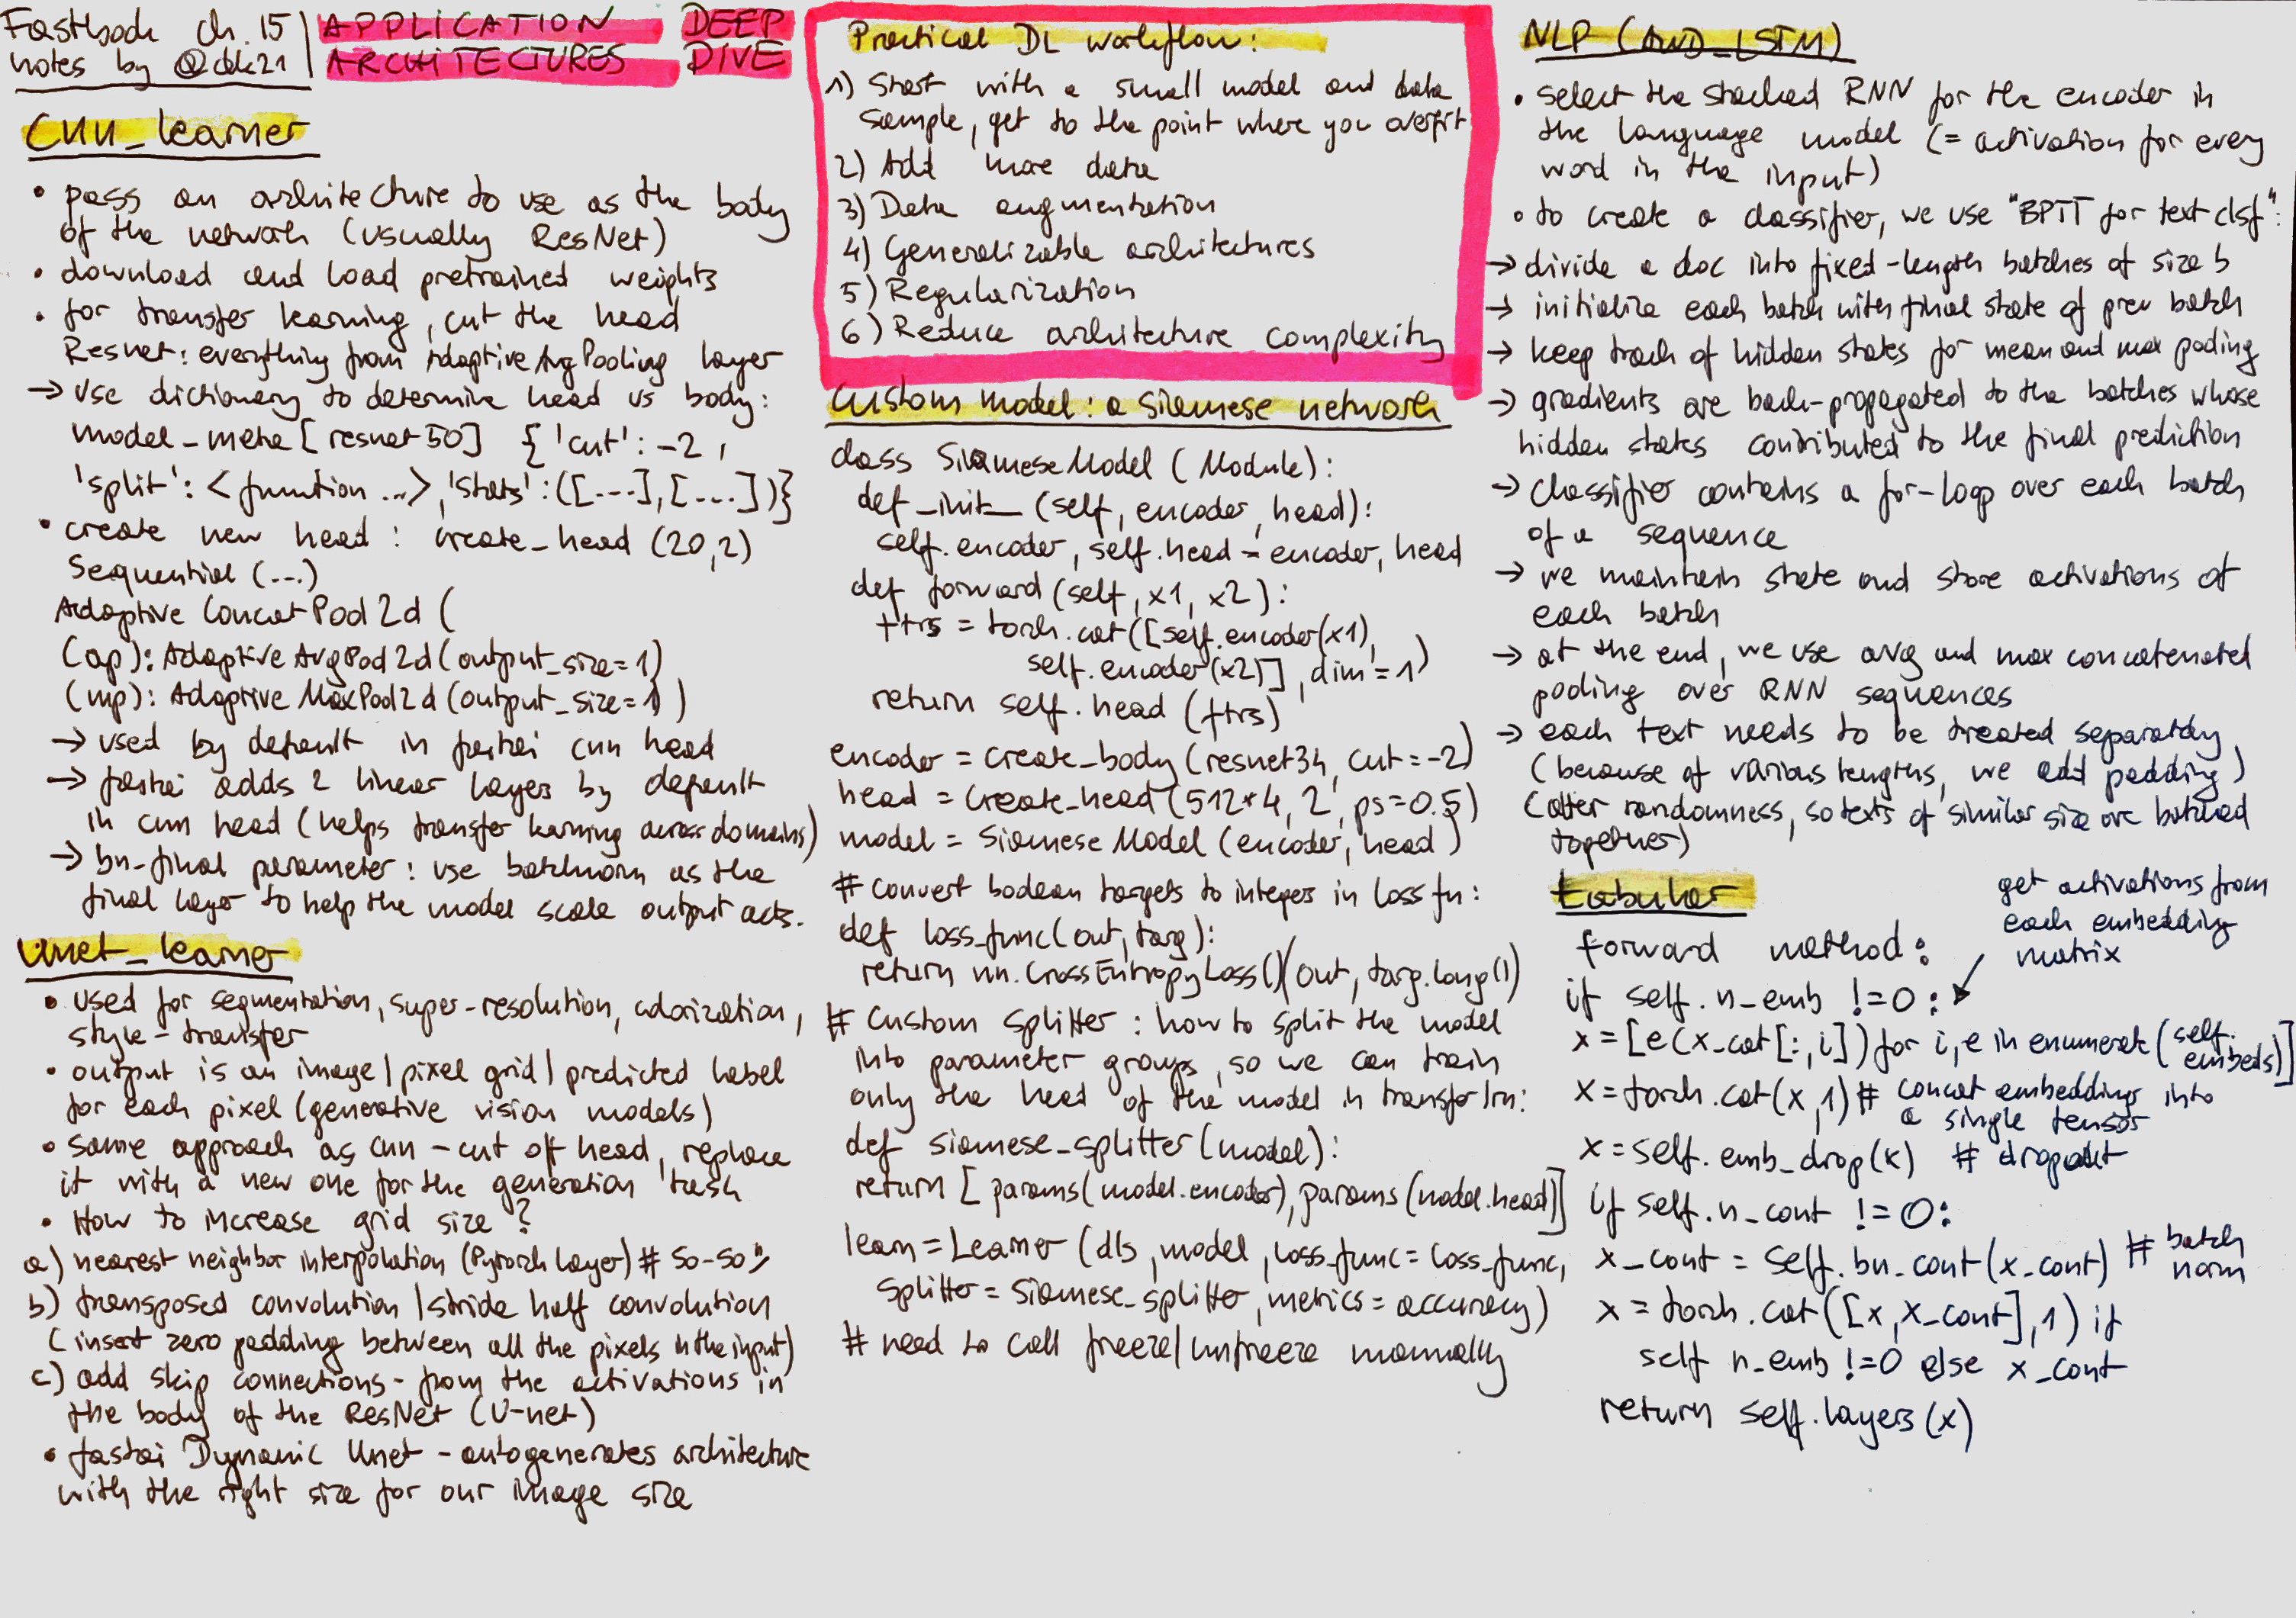 Fastbook ch. 15
notes by @dk21
APPLICATION
ARCHITECTURES
DEEP
DIVE
Cnn_learner
• pass an architecture to use as the body
of the network (usually ResNet)
• download and load pretrained weights
• for transfer learning, cut the head
Resnet: everything from AdaptiveAvgPooling layer
→ use dictionary to determine head vs body:
model_meta [resnet50] {'cut': -2,
'split': <function ...>, 'stats': ([---], [---])}
• create new head: create_head (20,2)
Sequential (---)
Adaptive ConcatPool2d (
(ap): AdaptiveAvgPool2d (output_size=1)
(mp): AdaptiveMaxPool2d (output_size=1))
→ used by default in fastai cnn head
→ fastai adds 2 linear layers by default
in cnn head (helps transfer learning across domains)
→ bn_final parameter: use batchnorm as the
final layer to help the model scale output acts.
Unet_learner
• used for segmentation, super-resolution, colorization,
style-transfer
• output is an image/pixel grid/predicted label
for each pixel (generative vision models)
• same approach as cnn - cut off head, replace
it with a new one for the generation task
• How to increase grid size?
a) nearest neighbor interpolation (Pytorch layer) # 50-50%
b) transposed convolution/stride half convolution
(insert zero padding between all the pixels in the input)
c) add skip connections - from the activations in
the body of the ResNet (U-net)
• fastai Dynamic Unet - autogenerates architecture
with the right size for our image size
Practical DL workflow:
1) Start with a small model and data
sample, get to the point where you overfit
2) Add more data
3) Data augmentation
4) Generalizable architectures
5) Regularization
6) Reduce architecture complexity
Custom model: a siamese network
class SiameseModel (Module):
def _init_ (self, encoder, head):
self.encoder, self.head = encoder, head
def forward (self, x1, x2):
ftrs = torch.cat ([self.encoder(x1),
self.encoder(x2)], dim=1)
return self.head (ftrs)
encoder = create_body (resnet34, cut=-2)
head = create_head (512*4, 2, ps=0.5)
model = Siamese Model (encoder, head)
# convert boolean targets to integers in loss fn:
def loss_func(out, targ):
return nn.CrossEntropyLoss()(out, targ.long())
# custom splitter: how to split the model
into parameter groups, so we can train
only the head of the model in transfer lrn:
def siamese_splitter (model):
return [params(model.encoder), params (model.head)]
learn = Learner (dls, model, loss_func = loss_func,
splitter = siamese_splitter, metrics = accuracy)
# need to call freeze/unfreeze manually
NLP (AWD_LSTM)
• select the stacked RNN for the encoder in
the language model (= activation for every
word in the input)
• to create a classifier, we use "BPTT for text clsf":
→ divide a doc into fixed-length batches of size b
→ initialize each batch with final state of prev batch
→ keep track of hidden states for mean and max pooling
→ gradients are back-propagated to the batches whose
hidden states contributed to the final prediction
→ classifier contains a for-loop over each batch
of a sequence
→ we maintain state and store activations of
each batch
→ at the end, we use avg and max concatenated
pooling over RNN sequences
→ each text needs to be treated separately
(because of various lengths, we add padding)
(alter randomness, so texts of similar size are batched
together)
tabular
get activations from
each embedding
matrix
forward method:
if self.n_emb !=0:
x = [e(x_cat[:,i]) for i,e in enumerate (self.
embeds)]
x = torch.cat(x,1) # concat embeddings into
a single tensor
x = self.emb_drop(x) # dropout
if self.n_cont !=0:
x_cont = self.bn_cont (x_cont) # batch
norm
x = torch.cat ([x, x_cont],1) if
self n_emb !=0 else x_cont
return self.layers (x)